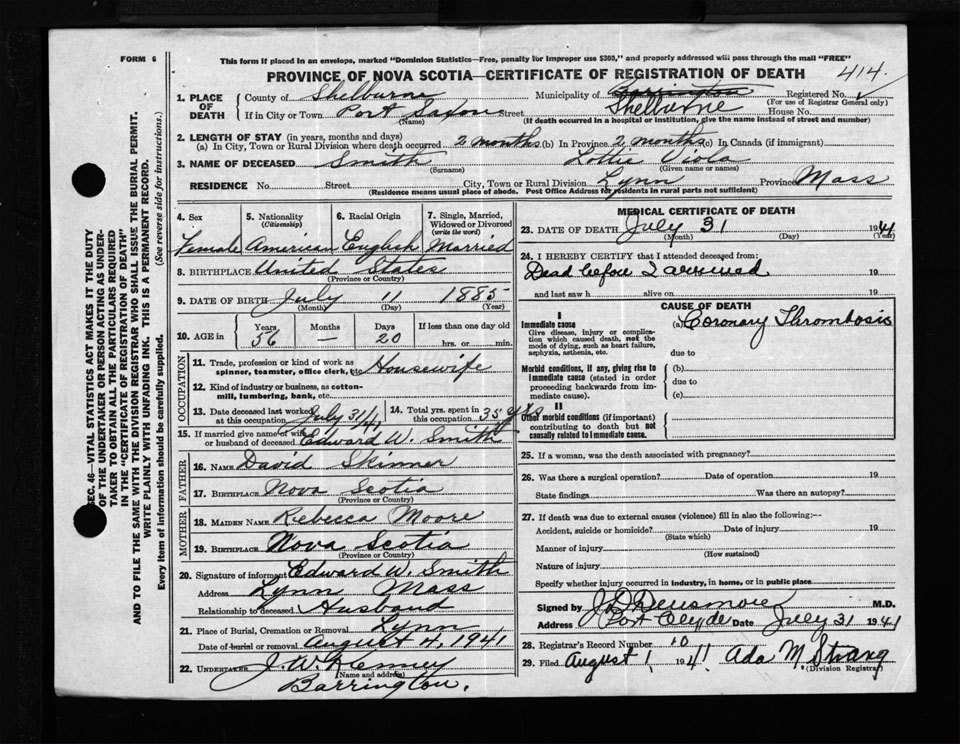 FORM 6
This form if placed in an envelope, marked "Dominion Statistics—Free, penalty for improper use $300," and properly addressed will pass through the mail "FREE"
PROVINCE OF NOVA SCOTIA—CERTIFICATE OF REGISTRATION OF DEATH
414
1. PLACE OF DEATH
County of Shelburne Municipality of Barrington Shelburne Registered No.
(For use of Registrar General only)
If in City or Town Port Saxon Street House No.
(Name) (If death occurred in a hospital or institution, give the name instead of street and number)
2. LENGTH OF STAY (in years, months and days)
(a) In City, Town or Rural Division where death occurred 2 months (b) In Province 2 months (c) In Canada (if immigrant)
3. NAME OF DECEASED Smith Lottie Viola
(Surname) (Given name or names)
RESIDENCE No. Street City, Town or Rural Division Lynn Province Mass
(Residence means usual place of abode. Post Office Address for residents in rural parts not sufficient)
4. Sex Female
5. Nationality (Citizenship) American
6. Racial Origin English
7. Single, Married, Widowed or Divorced (write the word) Married
8. BIRTHPLACE United States
(Province or Country)
9. DATE OF BIRTH July 11 1885
(Month) (Day) (Year)
10. AGE in Years 56 Months — Days 20 If less than one day old
hrs. or min.
OCCUPATION
11. Trade, profession or kind of work as spinner, teamster, office clerk, etc Housewife
12. Kind of industry or business, as cotton-mill, lumbering, bank, etc.
13. Date deceased last worked at this occupation July 31/41
14. Total yrs. spent in this occupation 35 yrs
15. If married give name of wife or husband of deceased Edward W. Smith
FATHER
16. NAME David Skinner
17. BIRTHPLACE Nova Scotia
(Province or Country)
MOTHER
18. MAIDEN NAME Rebecca Moore
19. BIRTHPLACE Nova Scotia
(Province or Country)
20. Signature of informant Edward W. Smith
Address Lynn Mass
Relationship to deceased Husband
21. Place of Burial, Cremation or Removal Lynn
Date of burial or removal August 4, 1941
22. UNDERTAKER J. W. Kenney
(Name and address)
Barrington.
MEDICAL CERTIFICATE OF DEATH
23. DATE OF DEATH July 31 1941
(Month) (Day) (Year)
24. I HEREBY CERTIFY that I attended deceased from:
Dead before I arrived 19
and last saw h alive on 19
CAUSE OF DEATH
I
Immediate cause (a) Coronary Thrombosis
Give disease, injury or complication which caused death, not the mode of dying, such as heart failure, asphyxia, asthenia, etc.
due to
Morbid conditions, if any, giving rise to immediate cause (stated in order proceeding backwards from immediate cause).
(b)
due to
(c)
II
Other morbid conditions (if important) contributing to death but not causally related to immediate cause.
25. If a woman, was the death associated with pregnancy?
26. Was there a surgical operation? Date of operation 19
State findings Was there an autopsy?
27. If death was due to external causes (violence) fill in also the following:—
Accident, suicide or homicide? Date of injury 19
(State which)
Manner of injury
(How sustained)
Nature of injury
Specify whether injury occurred in industry, in home, or in public place
Signed by J D Densmore M.D.
Address Port Clyde Date July 31 1941
28. Registrar's Record Number 10
29. Filed August 1 1941 Ada M. Strang
(Division Registrar)
SEC. 46—VITAL STATISTICS ACT MAKES IT THE DUTY
OF THE UNDERTAKER OR PERSON ACTING AS UNDER-
TAKER TO OBTAIN ALL THE PARTICULARS REQUIRED
IN THE "CERTIFICATE OF REGISTRATION OF DEATH"
AND TO FILE THE SAME WITH THE DIVISION REGISTRAR WHO SHALL ISSUE THE BURIAL PERMIT.
WRITE PLAINLY WITH UNFADING INK. THIS IS A PERMANENT RECORD.
Every item of information should be carefully supplied. (See reverse side for instructions.)